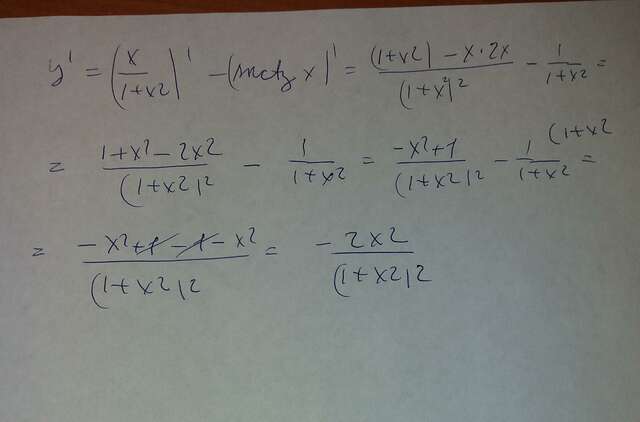 y' = (x/(1+x2))' - (arctg x)' = ((1+x2) - x·2x)/(1+x²)² - 1/(1+x2) =
= (1+x²-2x2)/(1+x2)² - 1/(1+x2) = (-x²+1)/(1+x2)² - 1/(1+x2) (1+x2 =
= (-x²+1-1-x²)/(1+x2)2 = -2x2/(1+x2)2